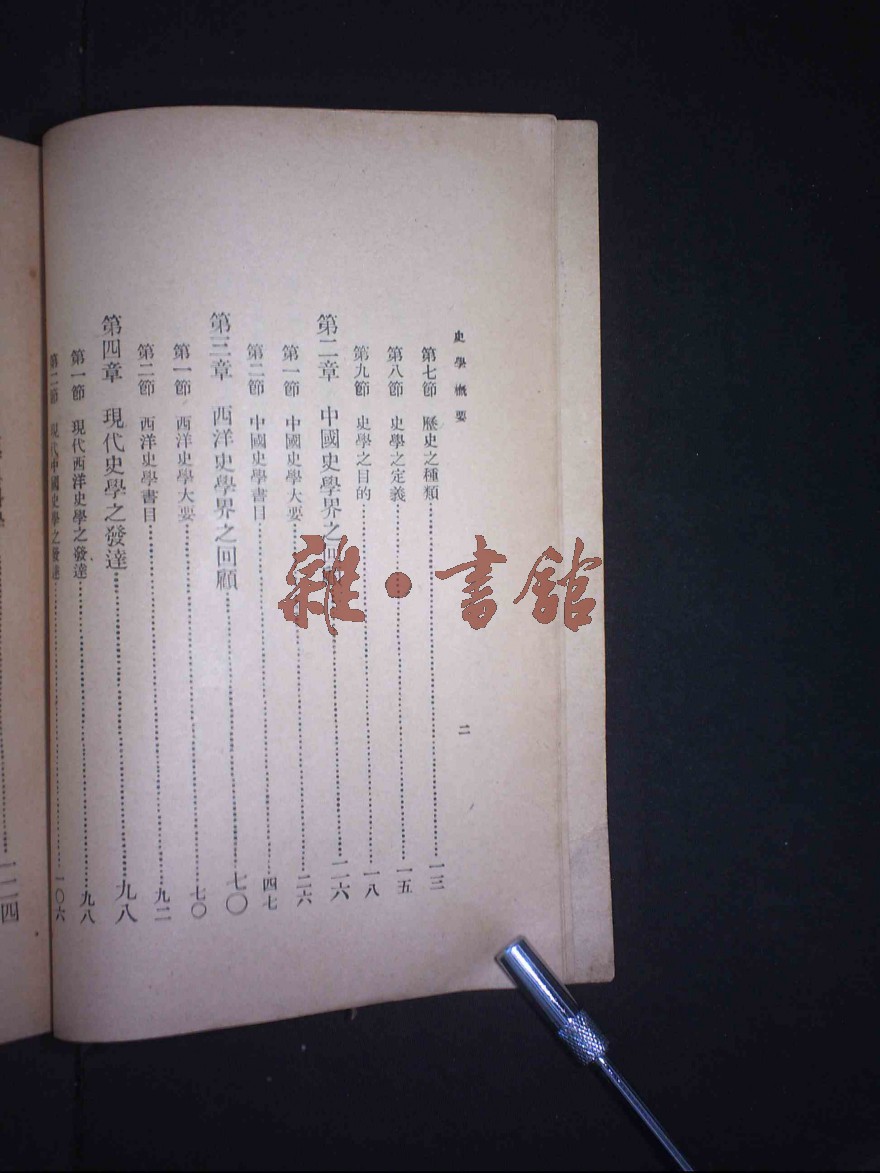 史學概要
二
第七節 歷史之種類 一三
第八節 史學之定義 一五
第九節 史學之目的 一八
第二章 中國史學界之回顧 二六
第一節 中國史學大要 二六
第二節 中國史學書目 四七
第三章 西洋史學界之回顧 七〇
第一節 西洋史學大要 七〇
第二節 西洋史學書目 九二
第四章 現代史學之發達 九八
第一節 現代西洋史學之發達 九八
第二節 現代中國史學之發達 一〇六
雜·書館